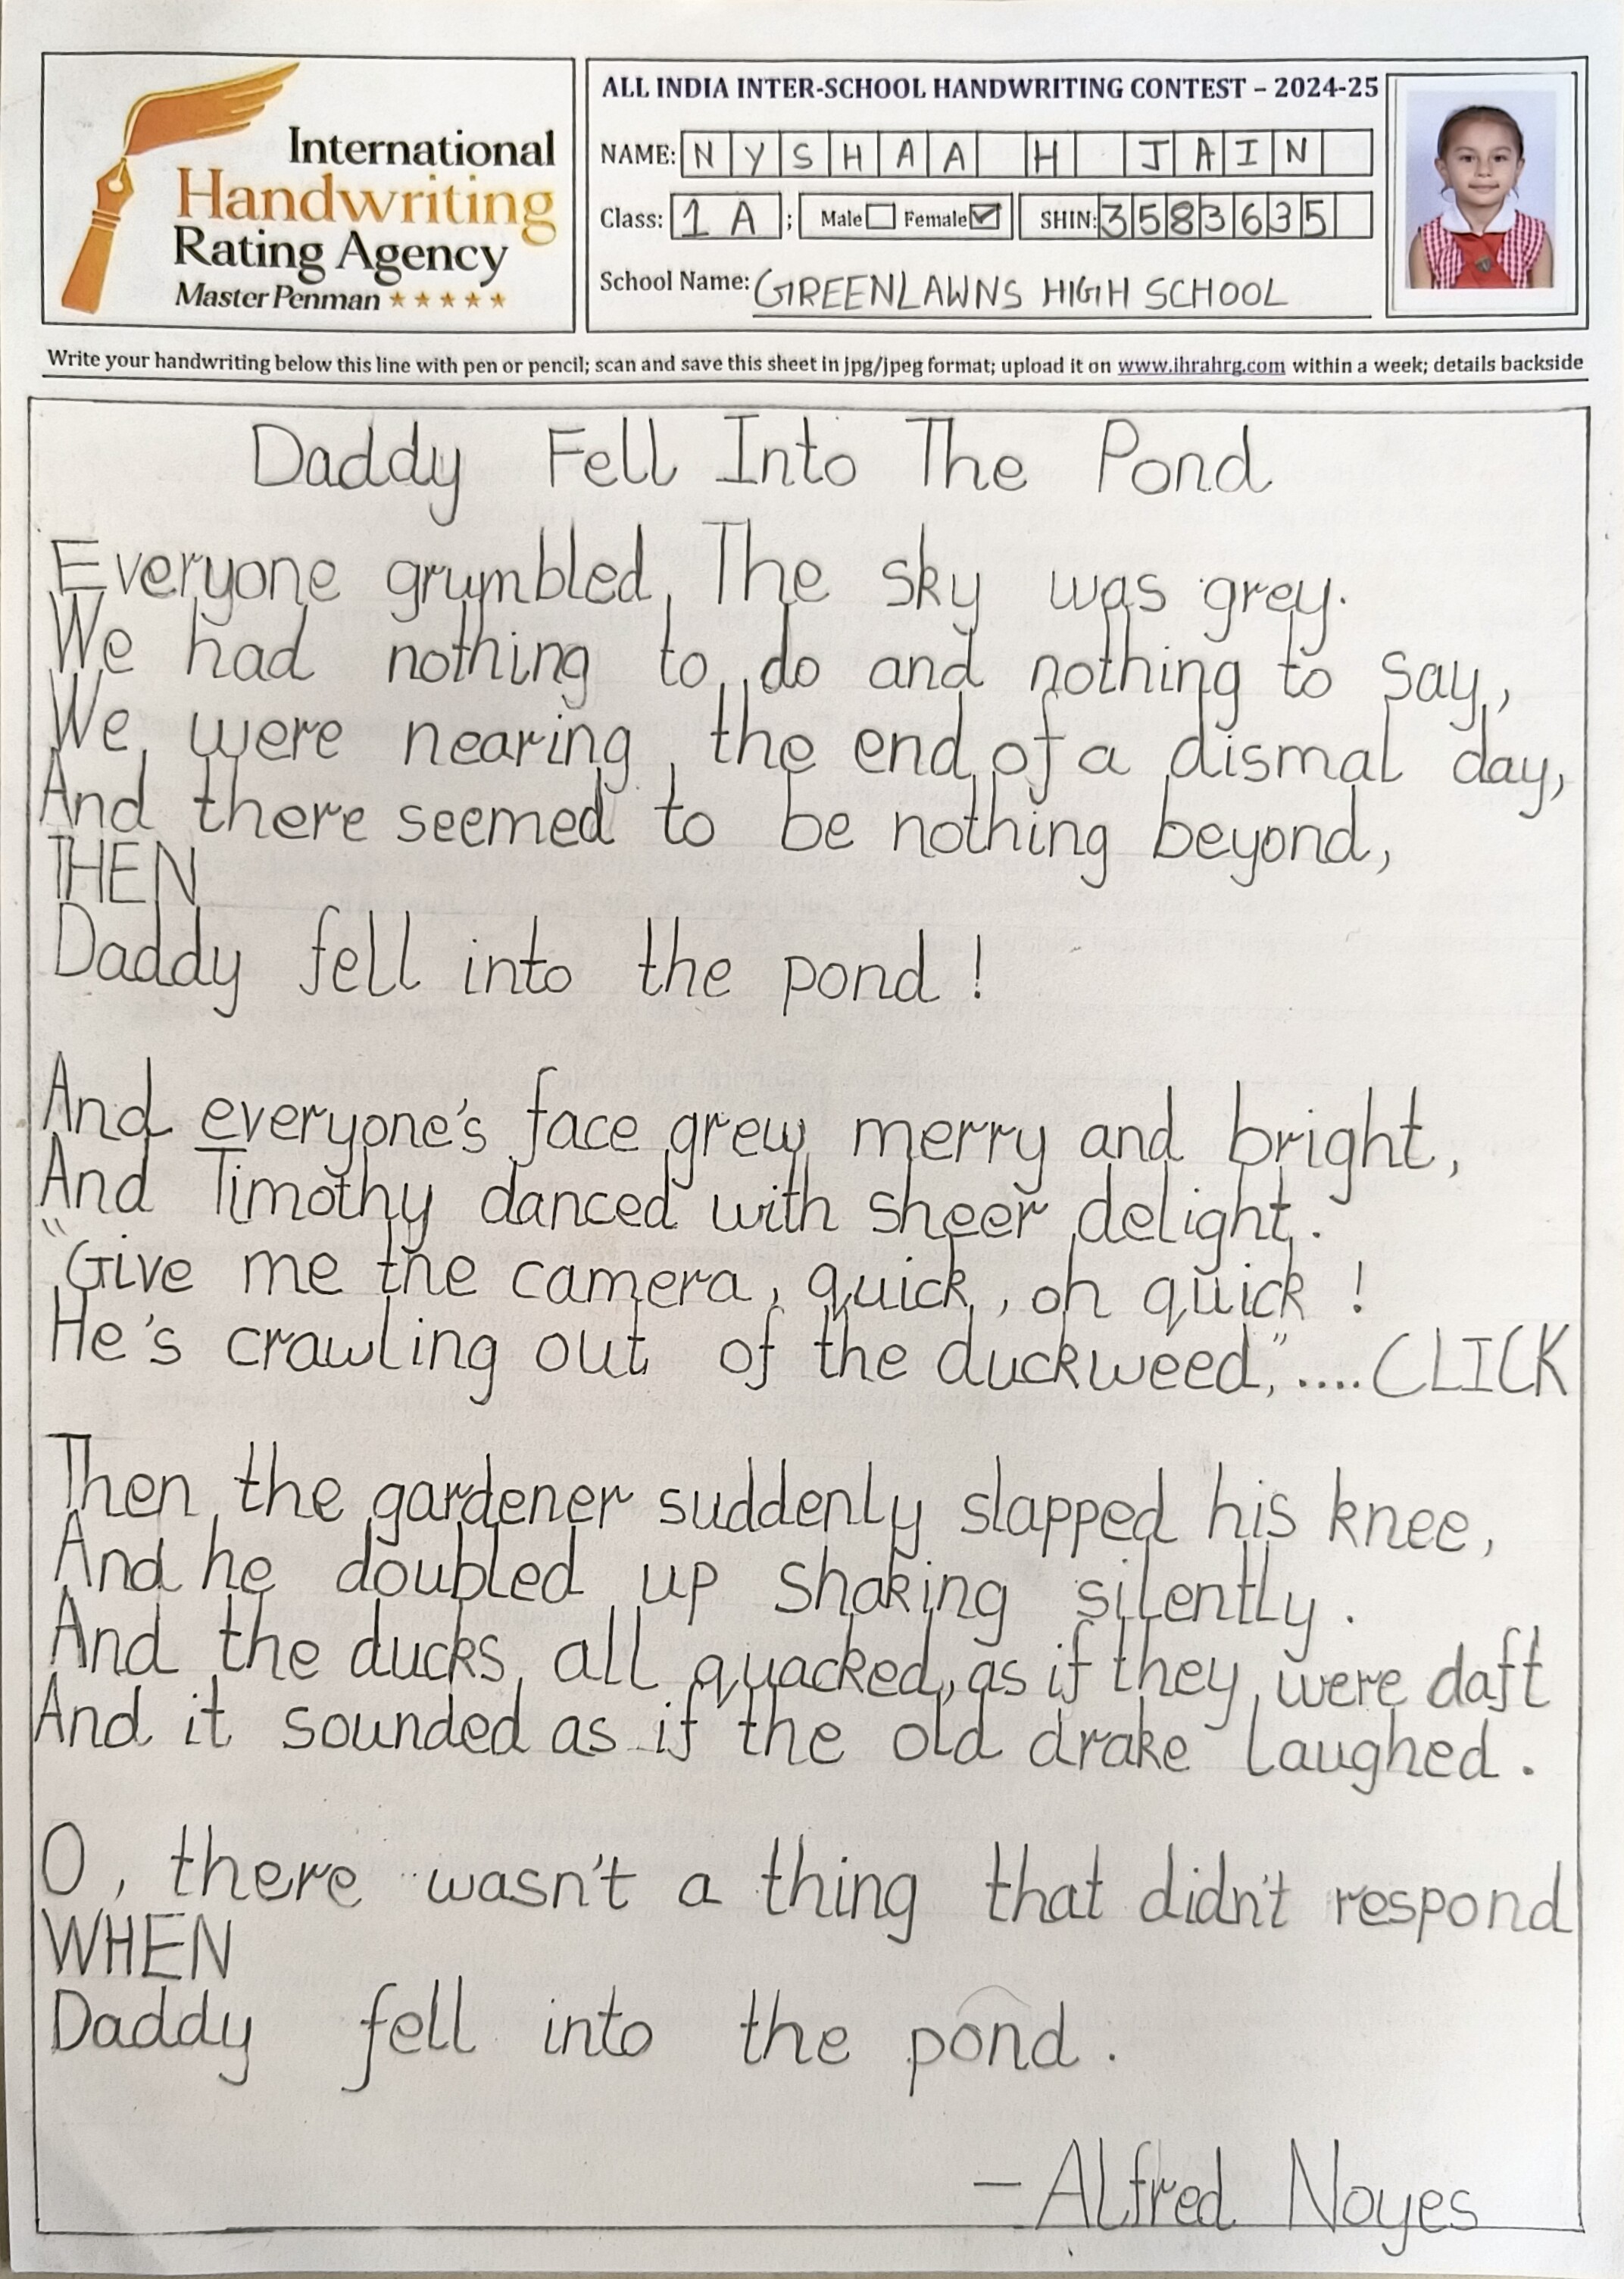 International
Handwriting
Rating Agency
Master Penman ★★★★★
ALL INDIA INTER-SCHOOL HANDWRITING CONTEST – 2024-25
NAME: NYSHAA H JAIN
Class: 1 A ; Male Female ✓ SHIN: 3583635
School Name: GREENLAWNS HIGH SCHOOL
Write your handwriting below this line with pen or pencil; scan and save this sheet in jpg/jpeg format; upload it on www.ihrahrg.com within a week; details backside
Daddy Fell Into The Pond
Everyone grumbled. The sky was grey.
We had nothing to do and nothing to say,
We were nearing the end of a dismal day,
And there seemed to be nothing beyond,
THEN
Daddy fell into the pond !
And everyone's face grew merry and bright,
And Timothy danced with sheer delight.
"Give me the camera, quick, oh quick !
He's crawling out of the duckweed," .... CLICK
Then the gardener suddenly slapped his knee,
And he doubled up shaking silently.
And the ducks all quacked, as if they were daft
And it sounded as if the old drake laughed.
O, there wasn't a thing that didn't respond
WHEN
Daddy fell into the pond.
– Alfred Noyes